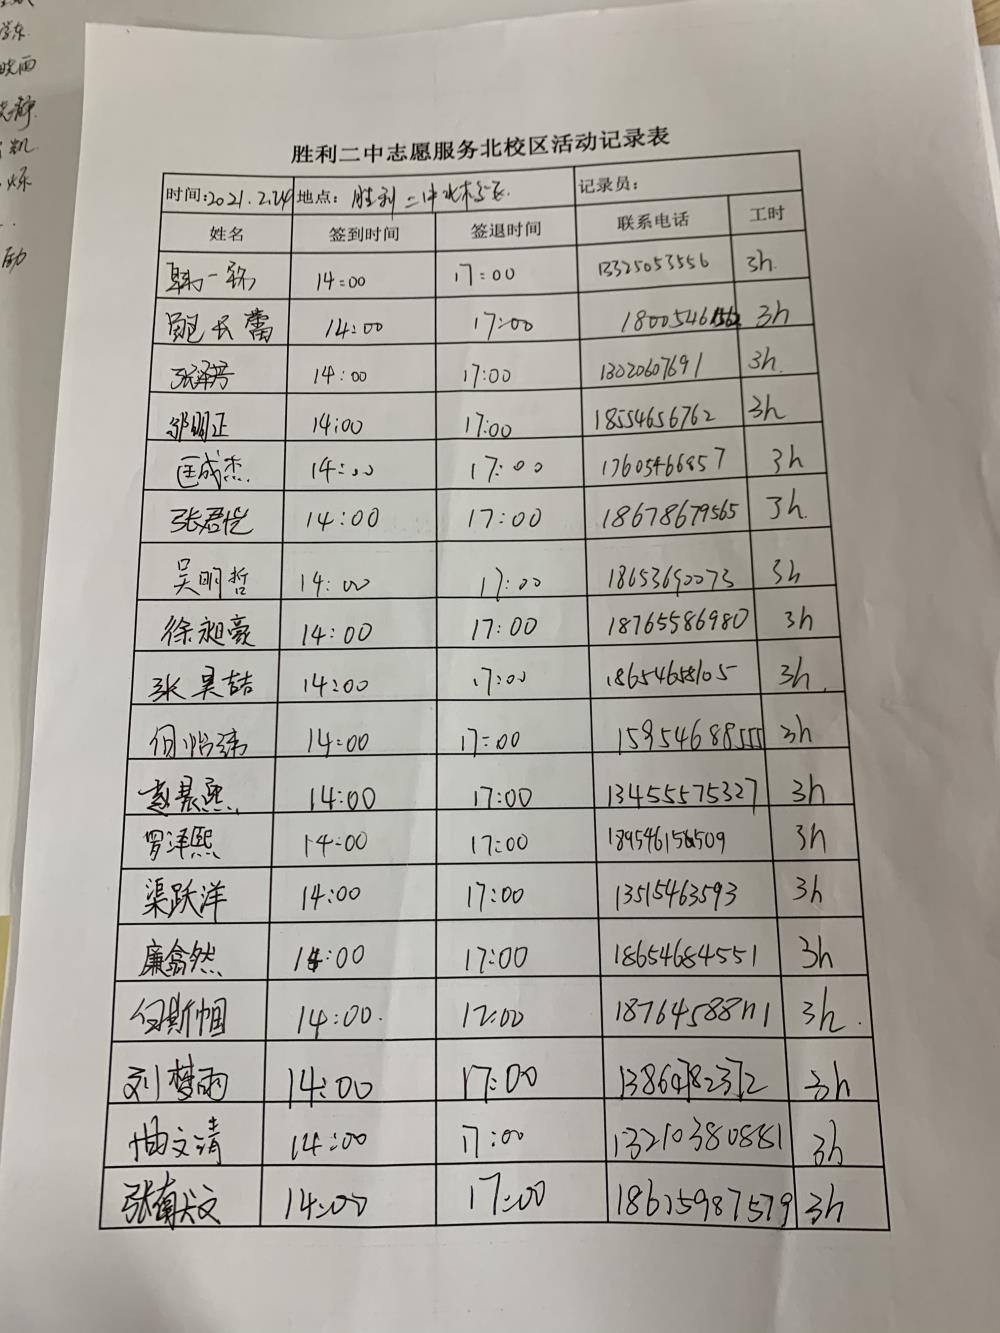 胜利二中志愿服务北校区活动记录表
时间:2021.2.24 地点: 胜利二中 记录员:
姓名 签到时间 签退时间 联系电话 工时
14:00 17:00 13325053556 3h.
鲍长蕾 14:00 17:00 1800546 3h
张泽芳 14:00 17:00 13020607691 3h.
邹明正 14:00 17:00 18554656762 3h
匡成杰 14:00 17:00 17605466857 3h
张君恺 14:00 17:00 18678679565 3h.
吴明哲 14:00 17:00 18653690073 3h
徐昶豪 14:00 17:00 18765586980 3h
张昊喆 14:00 17:00 18654658105 3h.
何怡 14:00 17:00 15954688555 3h
赵晨熙 14:00 17:00 13455575327 3h
罗泽熙 14:00 17:00 3h
渠跃洋 14:00 17:00 13515463593 3h
廉翕然 14:00 17:00 18654684551 3h
何斯帼 14:00. 17:00 18764588171 3h.
刘梦雨 14:00 17:00 3h
曲文清 14:00 17:00 13210380881 3h
张 文 14:00 17:00 18615987579 3h